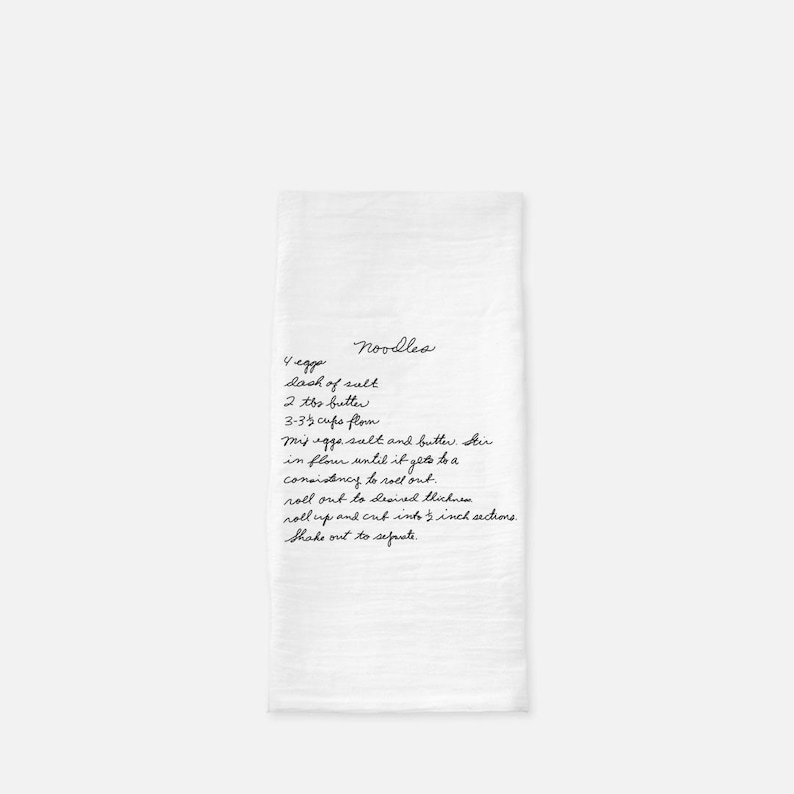 Noodles
4 eggs
dash of salt
2 tbs butter
3-3½ cups flour
Mix eggs, salt and butter. Stir
in flour until it gets to a
consistency to roll out.
roll out to desired thickness.
roll up and cut into ½ inch sections.
Shake out to separate.